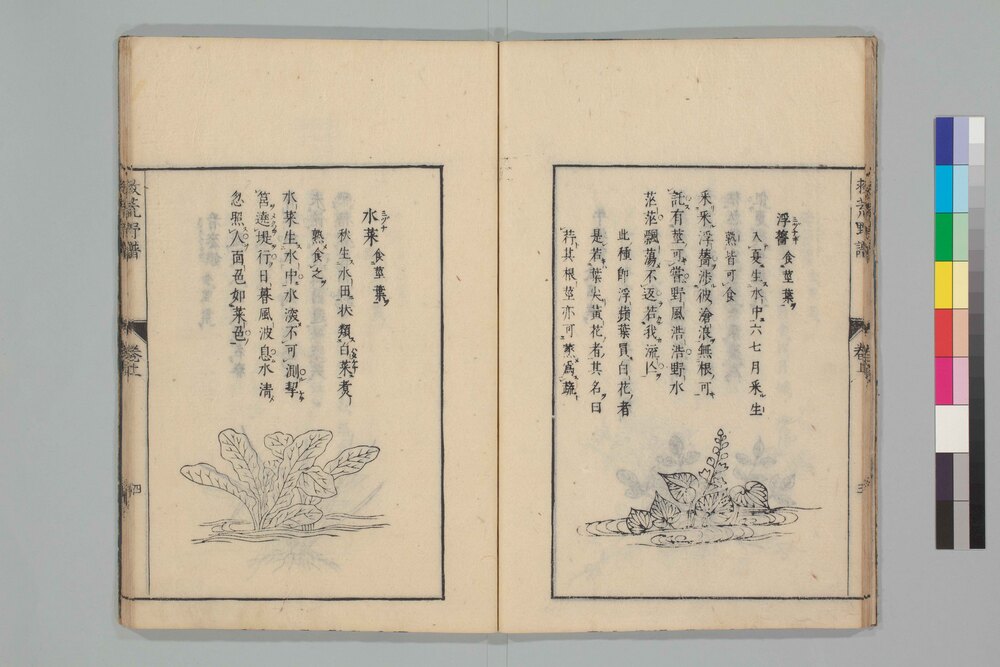 救荒野譜
浮薔 食莖葉
入夏生水中六七月采生
熟皆可食
采采浮薔涉彼滄浪無根可
託有莖可嘗野風浩浩野水
茫茫飄蕩不返若我流亾
此種即浮蘋葉貫白花者
是若葉尖黃花者其名曰
荇其根莖亦可蒸爲蔬
水菜 食莖葉
秋生水田狀類白菜煮
熟食之
水菜生水中水深不可測挈
筥遶堤行日暮風波息水清
忽照人面色如菜色
救荒野譜
四